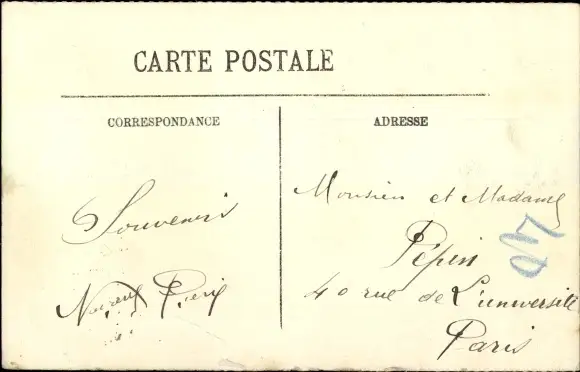 CARTE POSTALE
CORRESPONDANCE
ADRESSE
Souvenir
Monsieur et Madame
Pépin
40 rue de L'université
Paris